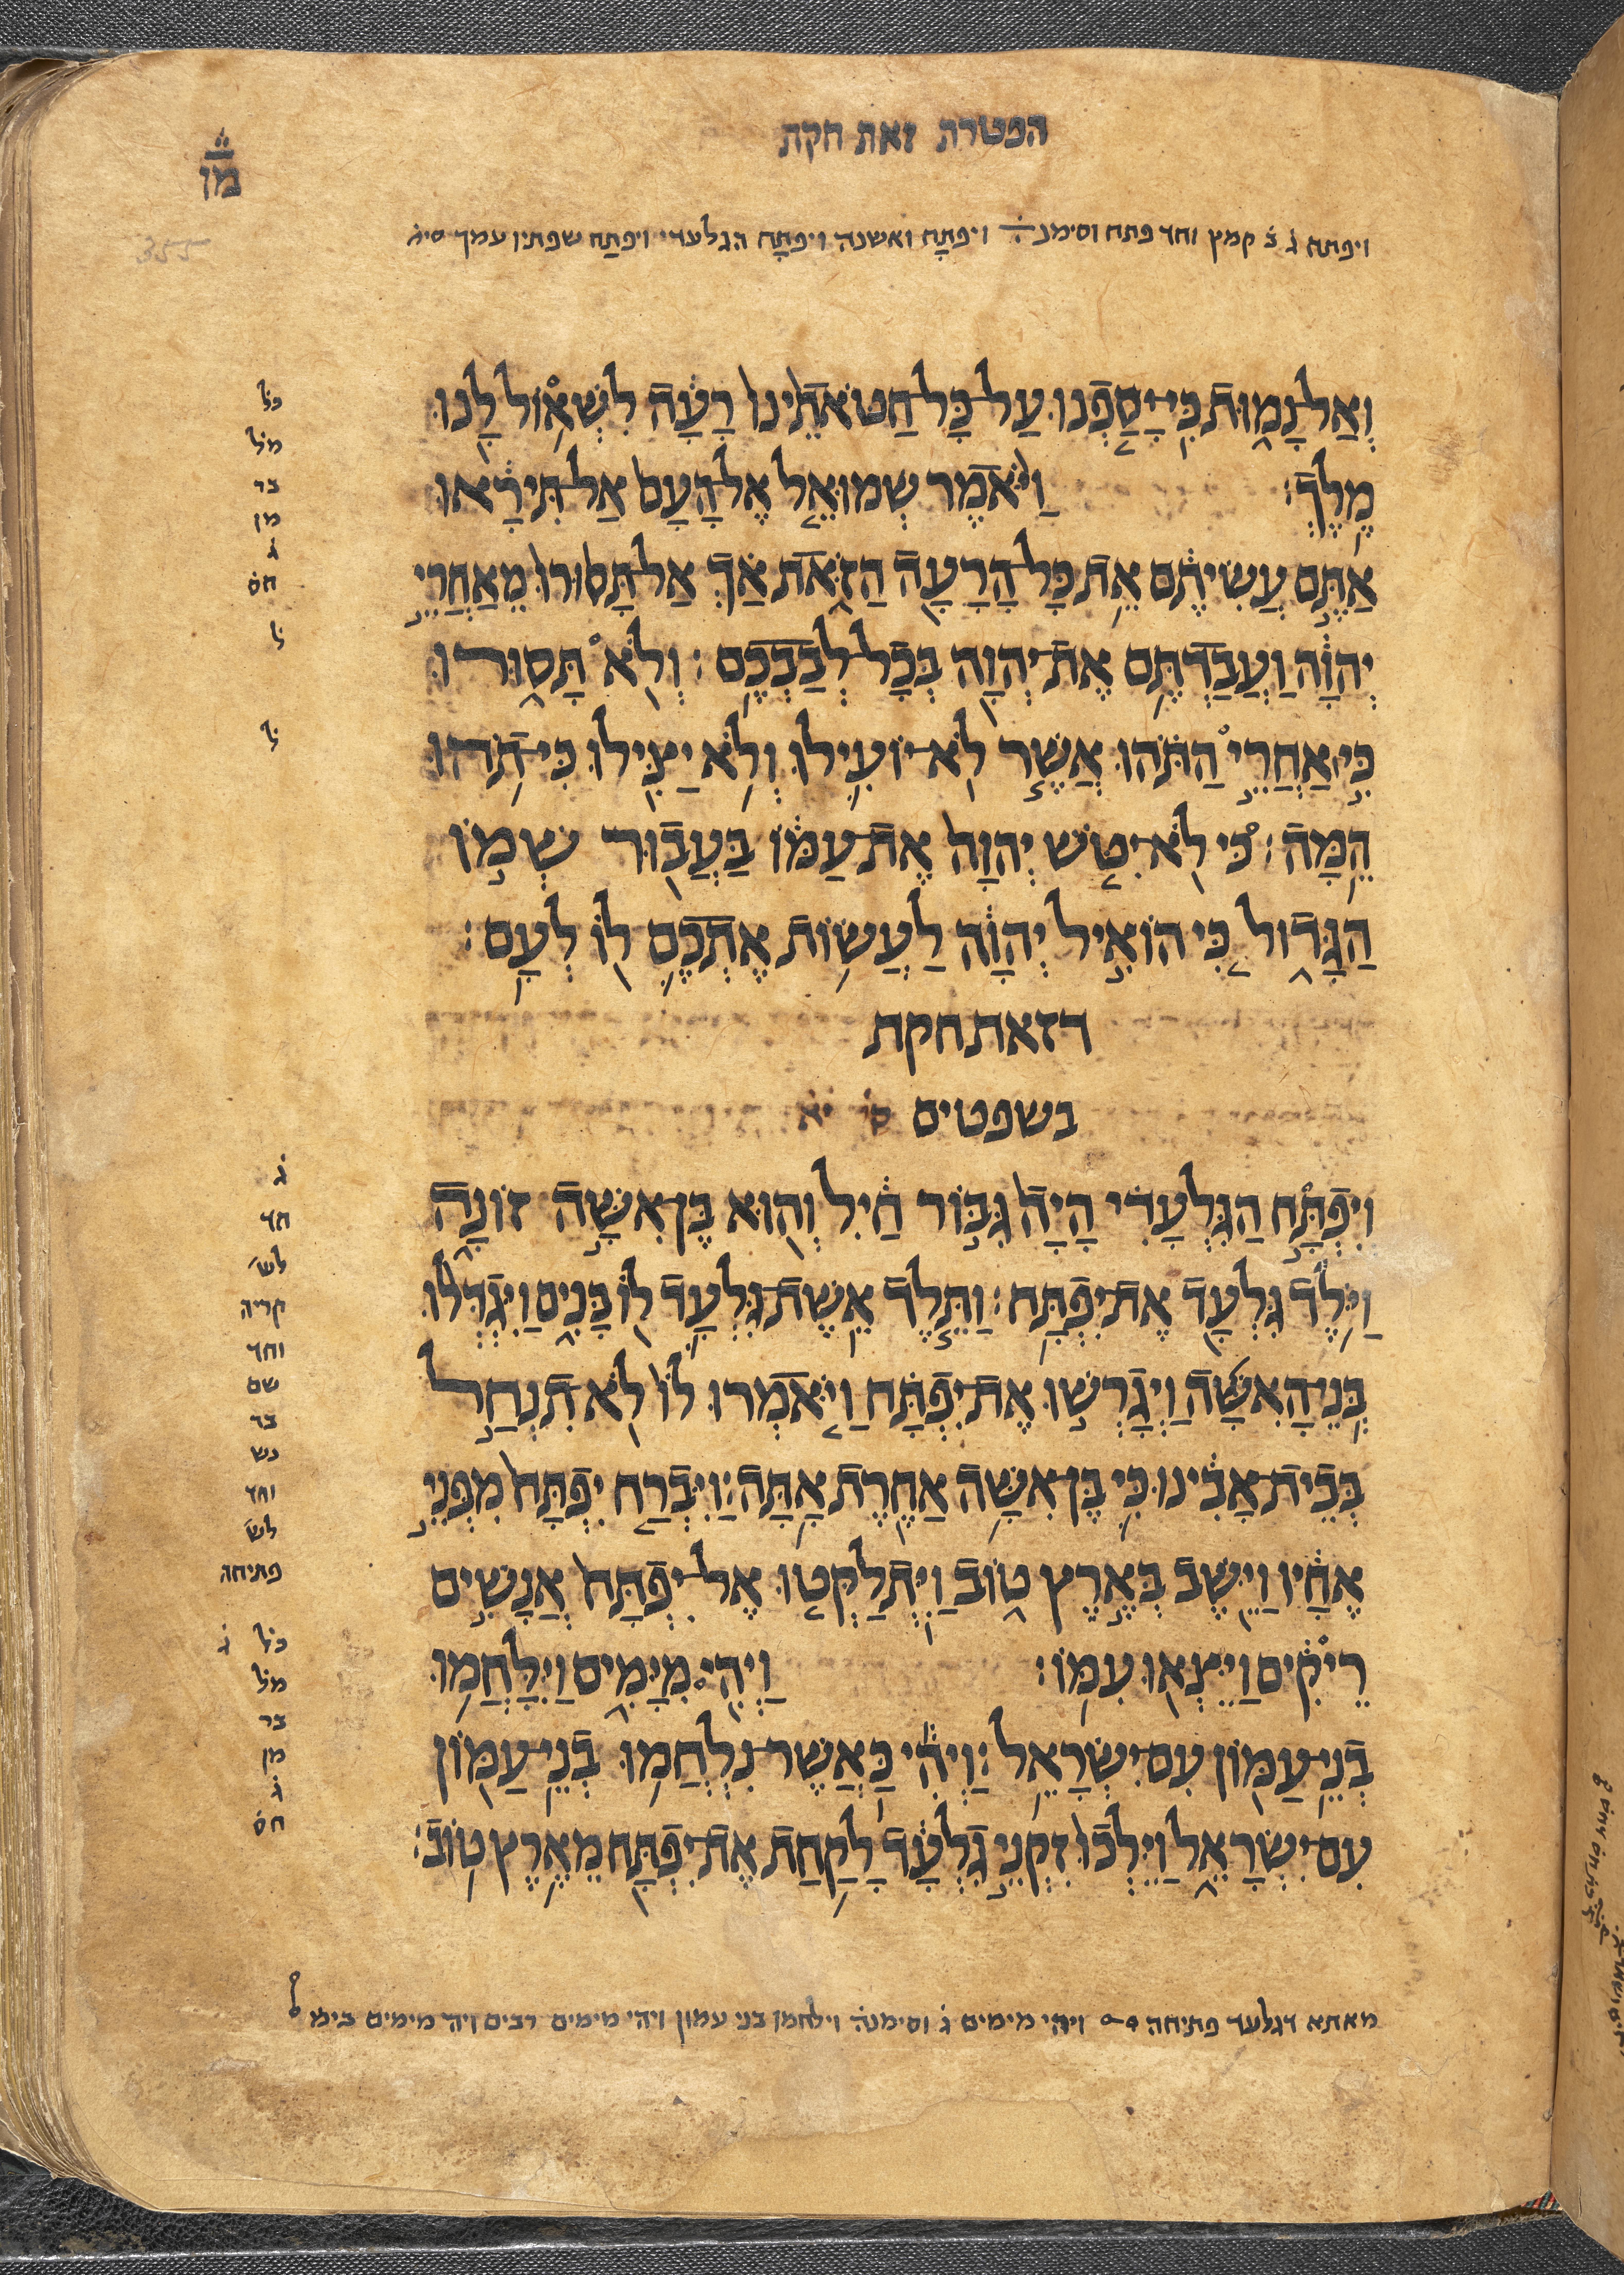 הפטרת זאת חקת
מן
355
ויפתח ג ב קמץ וחד פתח וסימנ ויפתָח ואשנה ויפתָח הגלעדי ויפתַח שפתיו עמך
וְאַל־נָמ֑וּת כִּֽי־יָסַ֤פְנוּ עַל־כָּל־חַטֹּאתֵ֙ינוּ֙ רָעָ֔ה לִשְׁאֹ֥ל לָ֖נוּ
מֶֽלֶךְ׃ וַיֹּ֨אמֶר שְׁמוּאֵ֤ל אֶל־הָעָם֙ אַל־תִּירָ֔אוּ
אַתֶּ֣ם עֲשִׂיתֶ֔ם אֵ֥ת כָּל־הָרָעָ֖ה הַזֹּ֑את אַ֗ךְ אַל־תָּס֙וּרוּ֙ מֵאַחֲרֵ֣י
יְהוָ֔ה וַעֲבַדְתֶּ֥ם אֶת־יְהוָ֖ה בְּכָל־לְבַבְכֶֽם׃ וְלֹ֖א תָּס֑וּרוּ
כִּ֣י ׀ אַחֲרֵ֣י הַתֹּ֗הוּ אֲשֶׁ֧ר לֹֽא־יוֹעִ֛ילוּ וְלֹ֥א יַצִּ֖ילוּ כִּי־תֹ֥הוּ
הֵֽמָּה׃ כִּ֠י לֹֽא־יִטֹּ֤שׁ יְהוָה֙ אֶת־עַמּ֔וֹ בַּעֲב֖וּר שְׁמ֣וֹ
הַגָּד֑וֹל כִּ֚י הוֹאִ֣יל יְהוָ֔ה לַעֲשׂ֥וֹת אֶתְכֶ֛ם ל֖וֹ לְעָֽם׃
דזאת חקת
בשפטים ס׳ יא
וְיִפְתָּ֣ח הַגִּלְעָדִ֗י הָיָה֙ גִּבּ֣וֹר חַ֔יִל וְה֖וּא בֶּן־אִשָּׁ֣ה זוֹנָ֑ה
וַיּ֥וֹלֶד גִּלְעָ֖ד אֶת־יִפְתָּֽח׃ וַתֵּ֧לֶד אֵֽשֶׁת־גִּלְעָ֛ד ל֖וֹ בָּנִ֑ים וַיִּגְדְּל֨וּ
בְֽנֵי־הָאִשָּׁ֜ה וַיְגָרְשׁ֣וּ אֶת־יִפְתָּ֗ח וַיֹּ֤אמְרוּ לוֹ֙ לֹֽא־תִנְחַ֣ל
בְּבֵית־אָבִ֔ינוּ כִּ֛י בֶּן־אִשָּׁ֥ה אַחֶ֖רֶת אָֽתָּה׃ וַיִּבְרַ֤ח יִפְתָּח֙ מִפְּנֵ֣י
אֶחָ֔יו וַיֵּ֖שֶׁב בְּאֶ֣רֶץ ט֑וֹב וַיִּֽתְלַקְּט֤וּ אֶל־יִפְתָּח֙ אֲנָשִׁ֣ים
רֵיקִ֔ים וַיֵּצְא֖וּ עִמּֽוֹ׃ וַיְהִ֖י מִיָּמִ֑ים וַיִּלָּחֲמ֥וּ
בְנֵֽי־עַמּ֖וֹן עִם־יִשְׂרָאֵֽל׃ וַיְהִ֕י כַּאֲשֶׁר־נִלְחֲמ֥וּ בְנֵֽי־עַמּ֖וֹן
עִם־יִשְׂרָאֵ֑ל וַיֵּֽלְכוּ֙ זִקְנֵ֣י גִלְעָ֔ד לָקַ֥חַת אֶת־יִפְתָּ֖ח מֵאֶ֥רֶץ טֽוֹב׃
כל
מל
בד
מן
ג
חס
ל
ל
ג
חד
לש
קריה
וחד
שם
בד
נש
וחד
לש
פתיחה
כל ג
מל
בד
מן
ג
חס
מאתא דגלעד פתיחה ויהי מימים ג וסימנה וילחמו בני עמון ויהי מימים רבים ויה מימים בימ